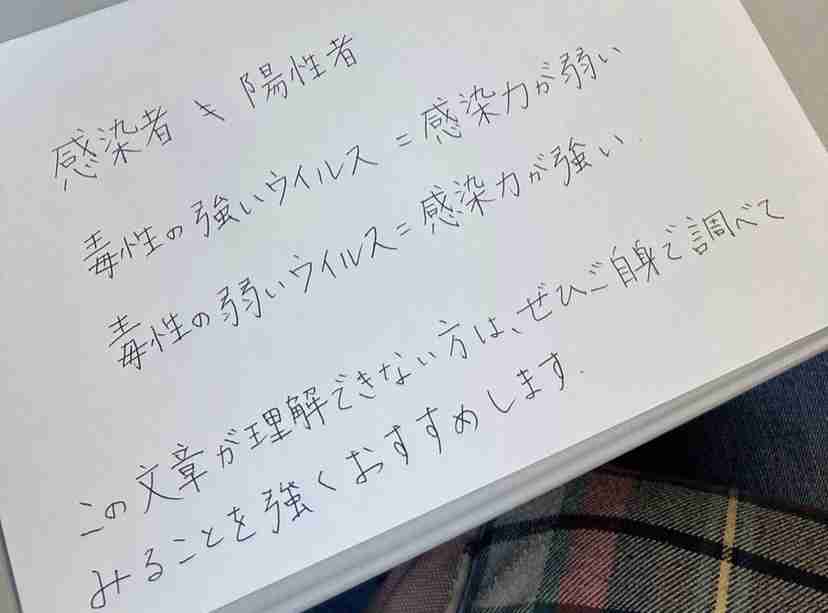 感染者 ≠ 陽性者
毒性の強いウイルス = 感染力が弱い
毒性の弱いウイルス = 感染力が強い.
この文章が理解できない方は、ぜひご自身で調べて
みることを強くおすすめします.